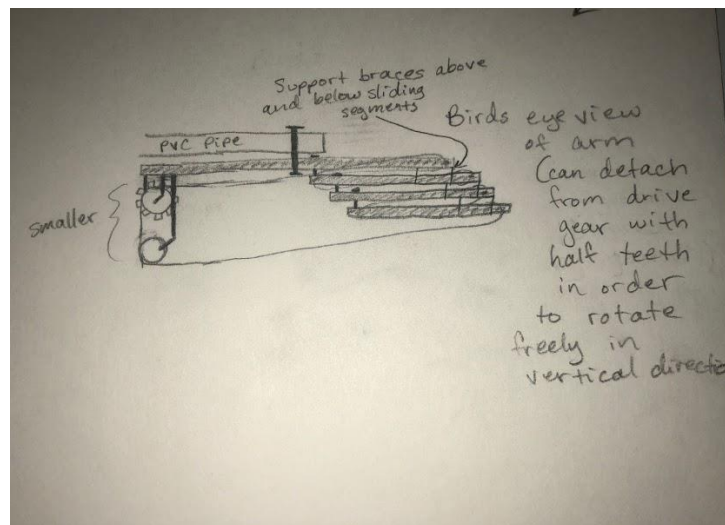 Support braces above
and below sliding
segments
PVC Pipe
smaller
Birds eye view
of arm
(can detach
from drive
gear with
half teeth
in order
to rotate
freely in
vertical directio